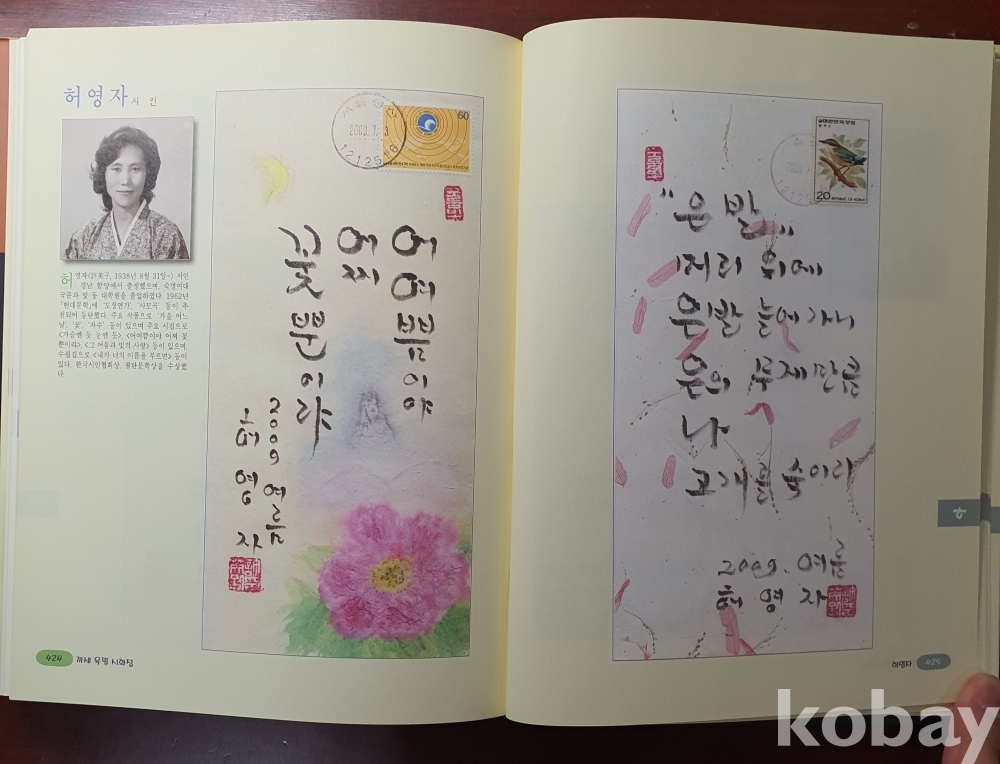 허영자 시인
허영자(許英子, 1938년 8월 31일~) 시인
. 경남 함양에서 출생했으며, 숙명여대
국문과 및 동 대학원을 졸업하였다. 1962년
「현대문학」에 '도정연가', '사모곡' 등이 추
천되어 등단했다. 주요 작품으로 '가을 어느
날', '꽃', '자수' 등이 있으며 주요 시집으로
<가슴엔 듯 눈엔 듯>, <어여쁨이야 어찌 꽃
뿐이랴>, <그 어둠과 빛의 사랑> 등이 있으며,
수필집으로 <내가 너의 이름을 부르면> 등이
있다. 한국시인협회상, 월탄문학상을 수상했
다.
60
어여쁨이야
어찌
꽃뿐이랴
2009 여름
허영자
424 육필 시화집
대한민국 우표
20
"은발"
머리 위에
은발 늘어 가니
은의 무게만큼
나
고개를 숙이리
2009. 여름
허영자
하
허영자 425
kobay